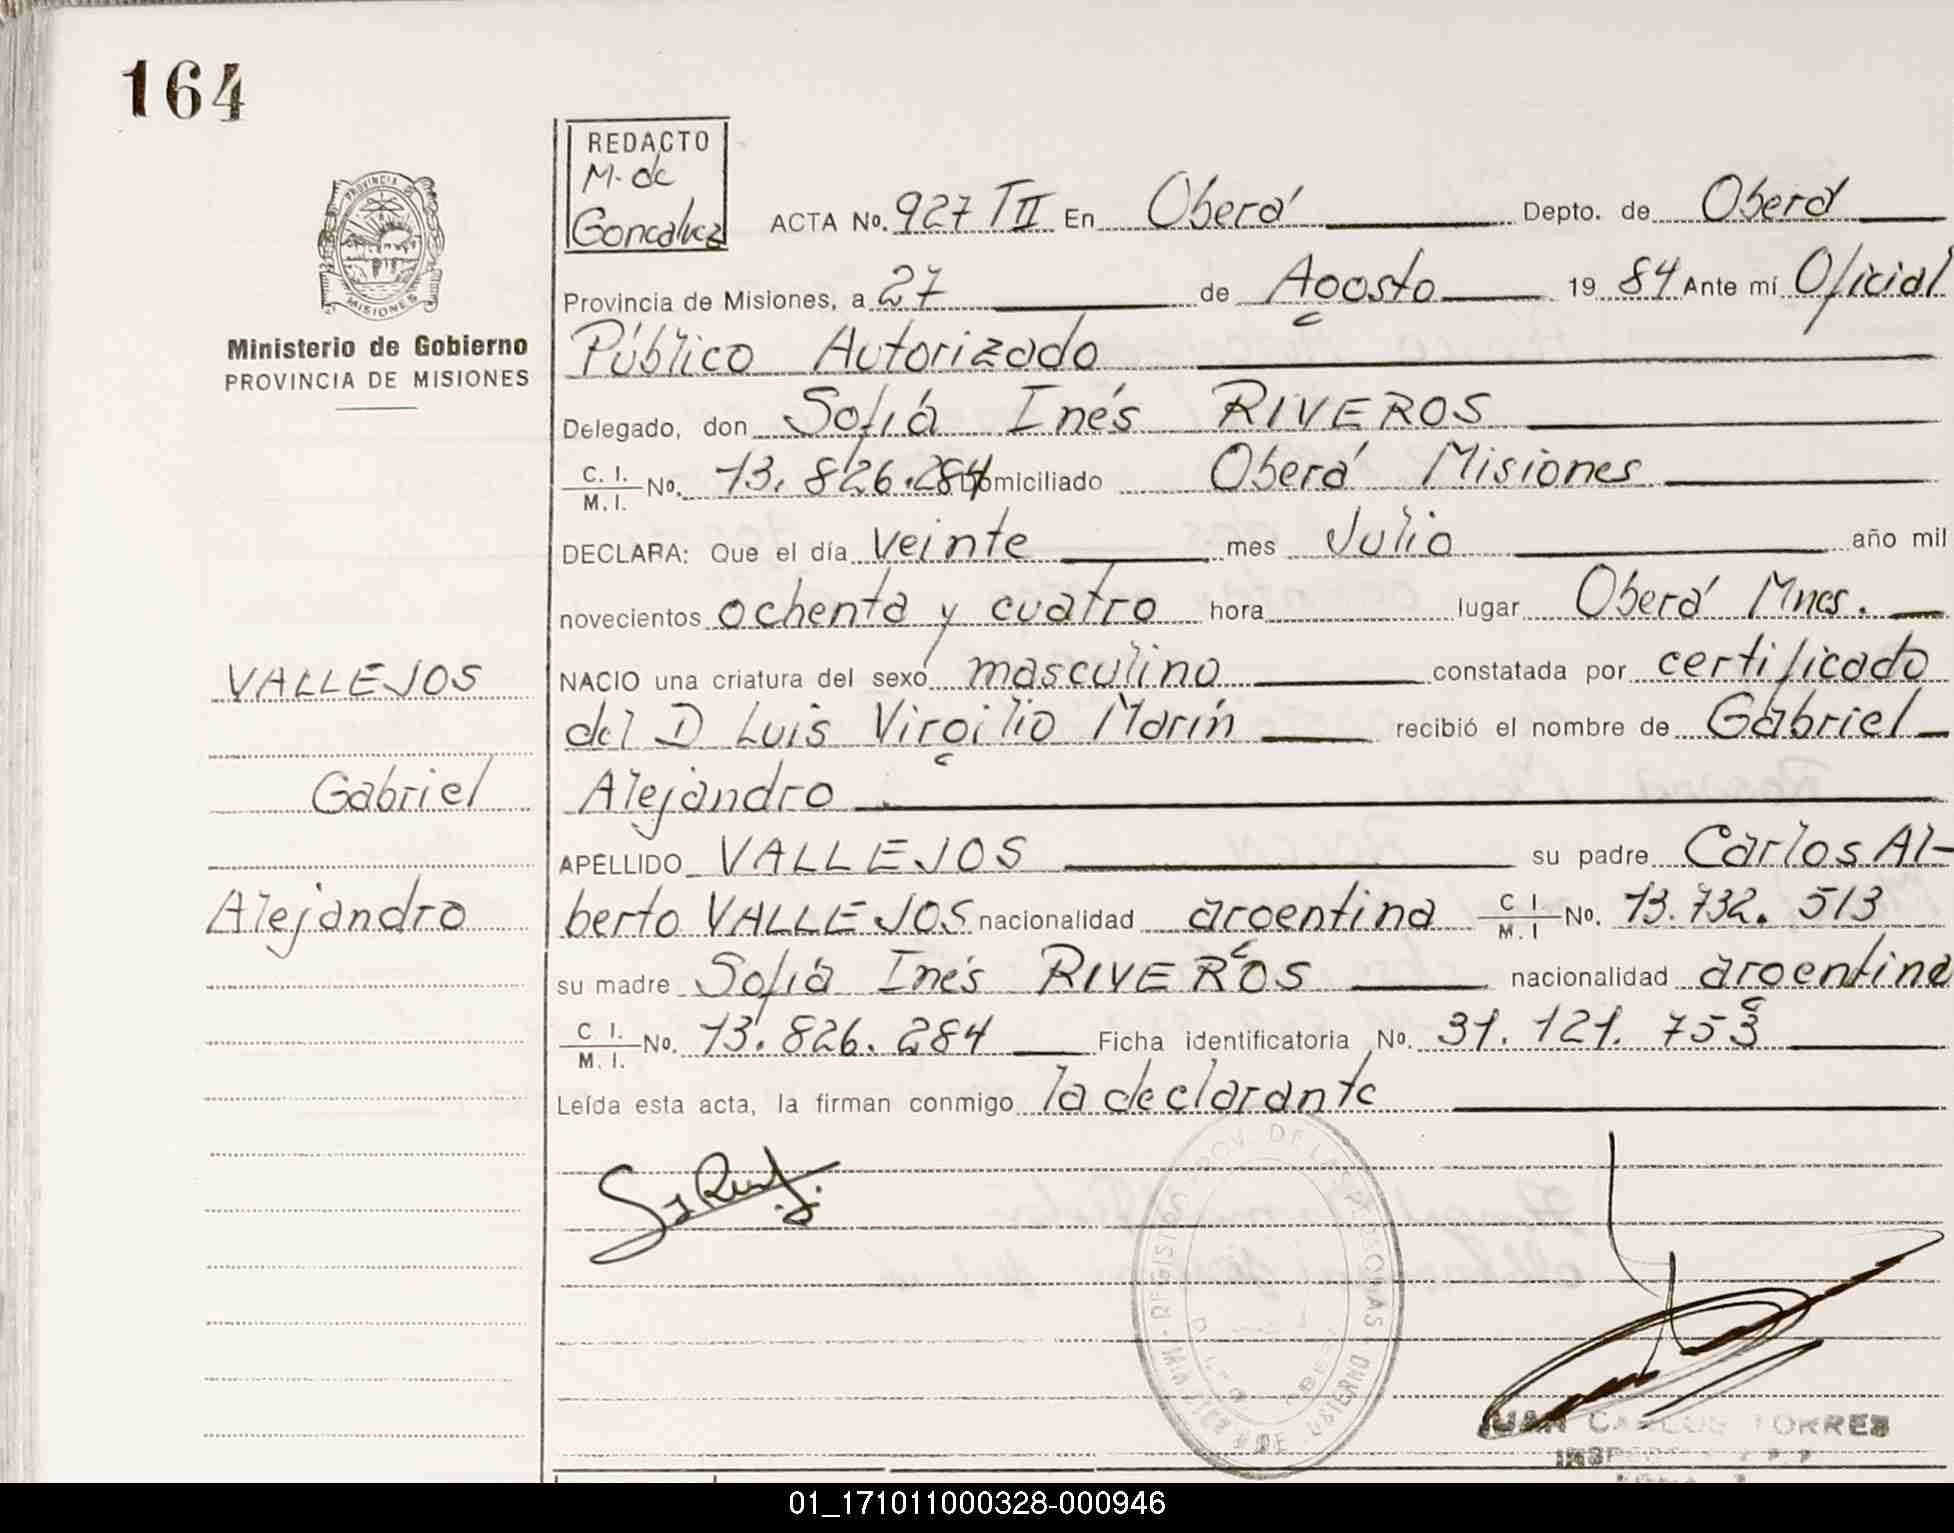 164
REDACTO
M. de
Goncalvez
PROVINCIA DE
MISIONES
Ministerio de Gobierno
PROVINCIA DE MISIONES
ACTA No. 927 TII En Oberá Depto. de Oberá
Provincia de Misiones, a 27 de Agosto 19 84 Ante mí Oficial
Público Autorizado
Delegado, don Sofia Inés RIVEROS
C. I. / M. I. No. 13.826.284 Domiciliado Oberá Misiones
DECLARA: Que el día veinte mes Julio año mil
novecientos ochenta y cuatro hora lugar Oberá Mnes.
NACIO una criatura del sexo masculino constatada por certificado
del D Luis Virgilio Marín recibió el nombre de Gabriel
Alejandro
APELLIDO VALLEJOS su padre Carlos Al-
berto VALLEJOS nacionalidad argentina C I / M. I No. 13.732.513
su madre Sofia Inés RIVEROS nacionalidad argentina
C I. / M. I. No. 13.826.284 Ficha identificatoria No. 31.121.753
Leída esta acta, la firman conmigo la declarante
VALLEJOS
Gabriel
Alejandro
JUAN CARLOS TORRES
01_171011000328-000946